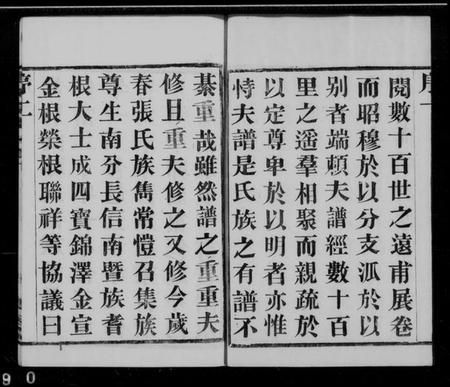 閱數十百世之遠甫展卷
而昭穆於以分支派於以
别者端頼夫譜經數十百
里之遥羣相聚而親疏於
以定尊卑於以明者亦惟
恃夫譜是氏族之有譜不
綦重哉雖然譜之重重夫
修且重夫修之又修今歲
春張氏族雋常愷召集族
尊生南分長信南暨族耆
根大士成四寶錦澤金宣
金根榮根聯祥等協議曰
9 0